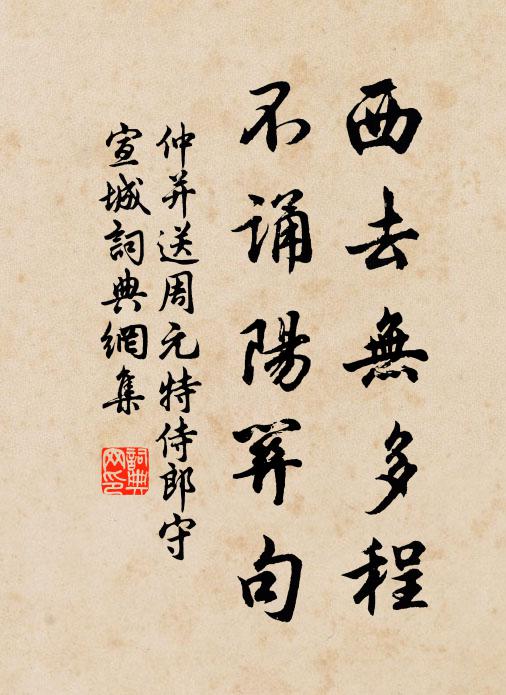 西去無多程
不誦陽關句
仲并送周元特侍郎守
宣城詞典網集
詞典
网印